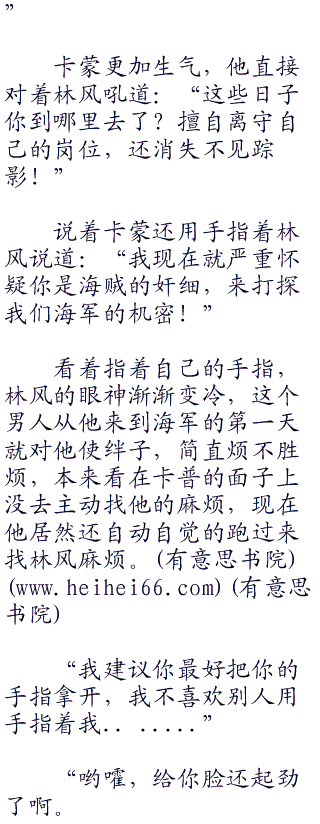 ”
卡蒙更加生气，他直接
对着林风吼道：“这些日子
你到哪里去了？擅自离守自
己的岗位，还消失不见踪
影！”
说着卡蒙还用手指着林
风说道：“我现在就严重怀
疑你是海贼的奸细，来打探
我们海军的机密！”
看着指着自己的手指，
林风的眼神渐渐变冷，这个
男人从他来到海军的第一天
就对他使绊子，简直烦不胜
烦，本来看在卡普的面子上
没去主动找他的麻烦，现在
他居然还自动自觉的跑过来
找林风麻烦。(有意思书院)
(www.heihei66.com)(有意思
书院)
“我建议你最好把你的
手指拿开，我不喜欢别人用
手指着我.. .....”
“哟嚯，给你脸还起劲
了啊。